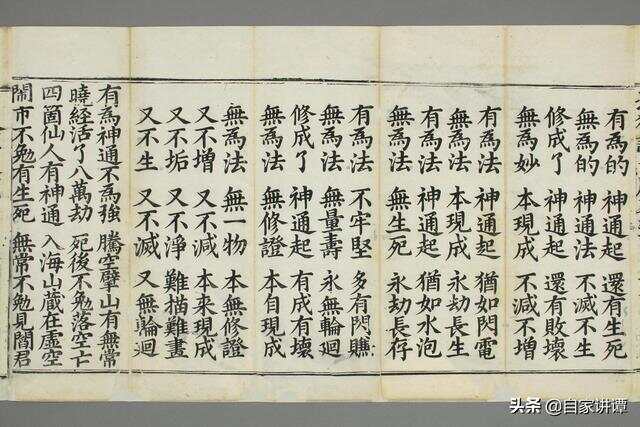 有為的 神通起 還有生死
無為的 神通法 不滅不生
修成了 神通起 還有敗壞
無為妙 本現成 不減不增
有為法 神通起 猶如閃電
無為法 本現成 永劫長生
有為法 神通起 猶如水泡
無為法 無生死 永劫長存
有為法 不牢堅 多有閃賺
無為法 無量壽 永無輪迴
修成了 神通起 有成有壞
無為法 無修證 本自現成
無為法 無一物 本無修證
又不增 又不減 本來現成
又不垢 又不淨 難描難畫
又不生 又不滅 又無輪迴
有為神通不為強 騰空擘山有無常
曉經活了八萬劫 死後不勉落空亡
四箇仙人有神通 入海山藏在虛空
鬧市不勉有生死 無常不勉見閻君
头条 @自家讲谭